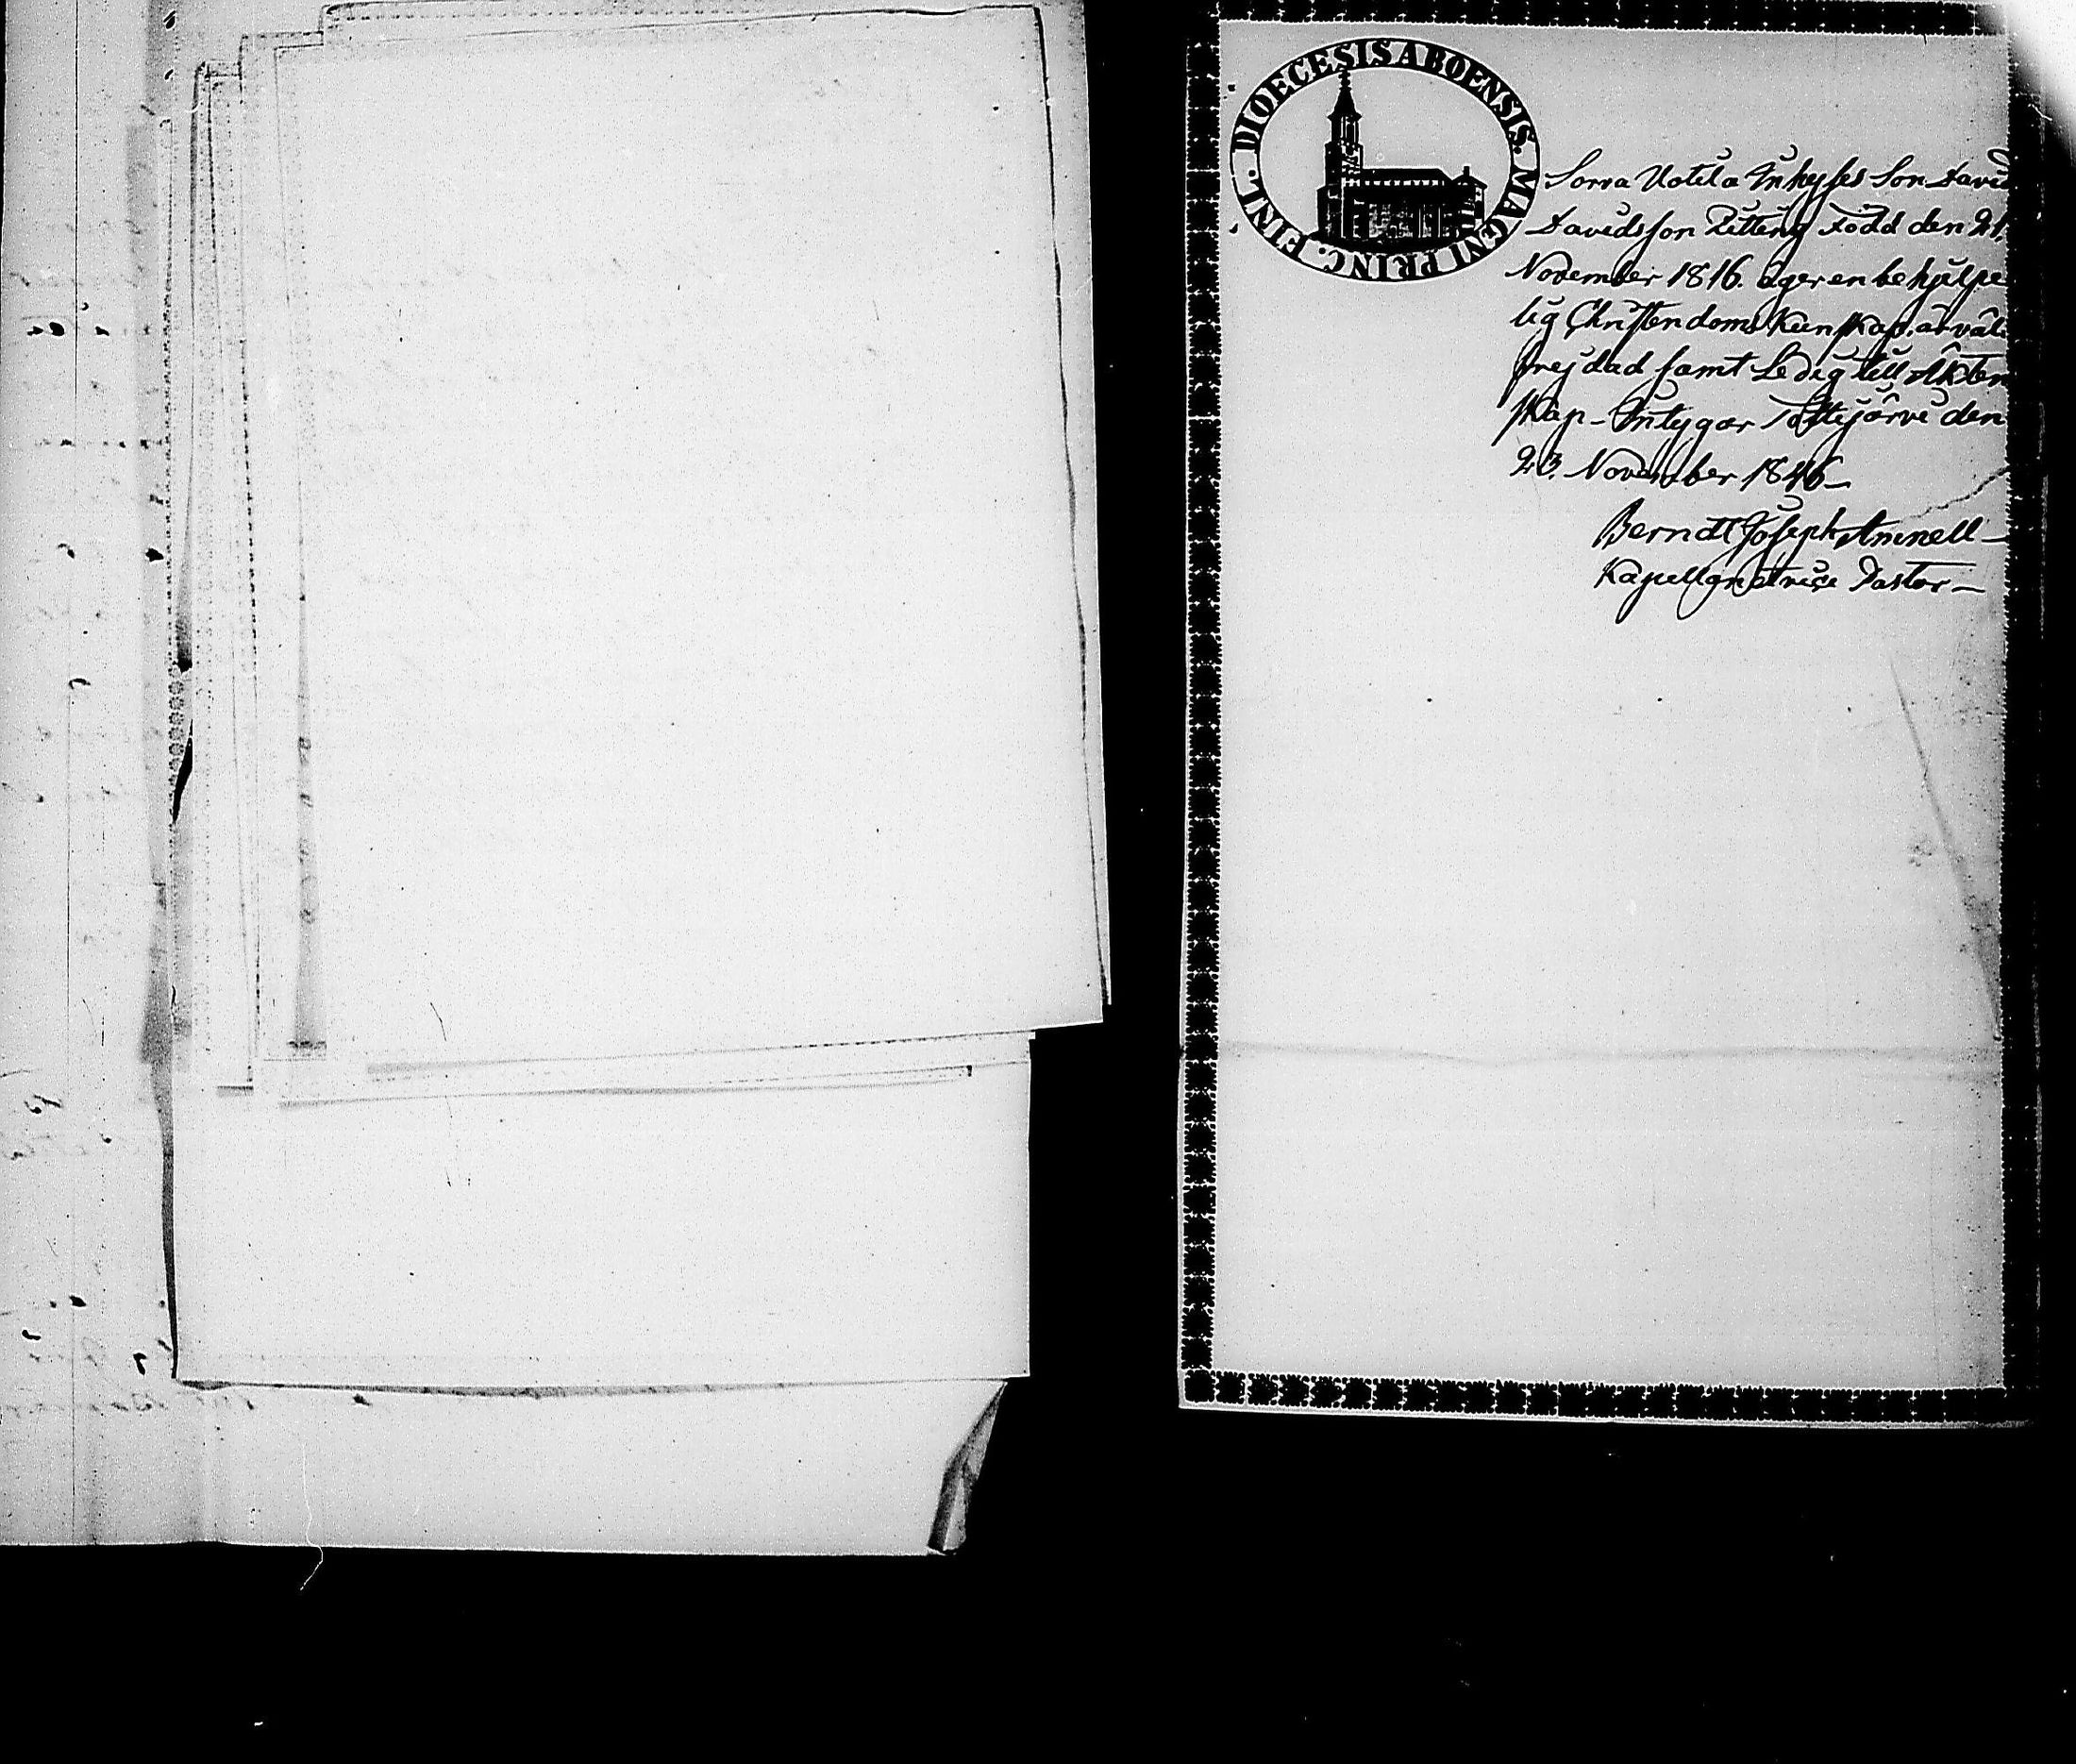 DIOECESIS ABOENSIS. MAGNI PRINC. FINL.
Sorva Uotila Inhyses Son David
Davidsson Zitting Född den 21.
November 1816. äger en behjelpe
lig Christendoms Kunskap, är väl
frejdad samt Ledig till Äkten
skap - Intygar Tottijärvi den
23. November 1846 -
Berndt Joseph Aminell -
Kapellan et vice Pastor -